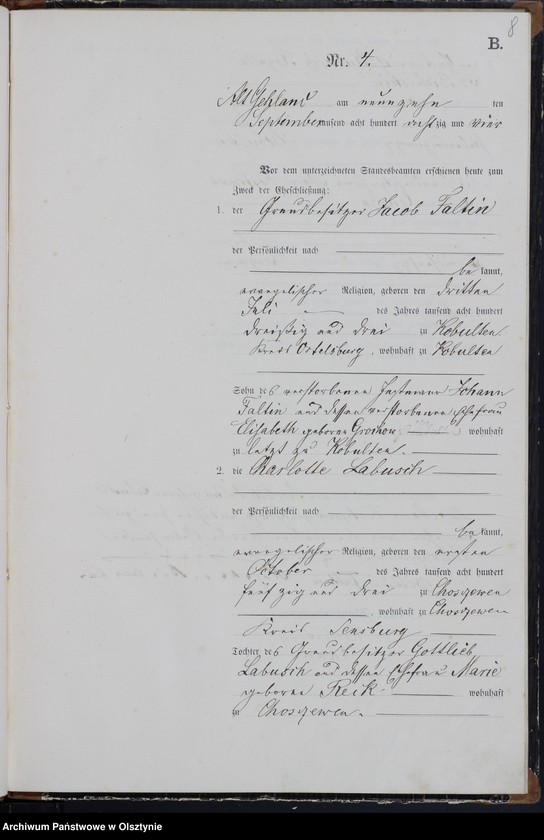 8
B.
Nr. 4.
Alt Gehland am neunzehn ten
September tausend acht hundert achtzig und vier
Vor dem unterzeichneten Standesbeamten erschienen heute zum
Zweck der Eheschließung:
1. der Grundbesitzer Jacob Faltin
der Persönlichkeit nach
be kannt,
evangelischer Religion, geboren den dritten
Juli des Jahres tausend acht hundert
dreißig und drei zu Kobulten
Kreis Ortelsburg, wohnhaft zu Kobulten
Sohn des verstorbenen Johann
Faltin und dessen verstorbenen Ehefrau
Elisabeth geborene wohnhaft
zu letzt zu Kobulten.
2. die Charlotte Labusch
der Persönlichkeit nach
be kannt,
evangelischer Religion, geboren den ersten
October des Jahres tausend acht hundert
fünfzig und drei zu Choszewen
, wohnhaft zu Choszewen
Kreis Sensburg
Tochter des Grundbesitzer Gottlieb
Labusch und dessen Ehefrau Marie
geborene Reik wohnhaft
zu Choszewen.
Archiwum Państwowe w Olsztynie